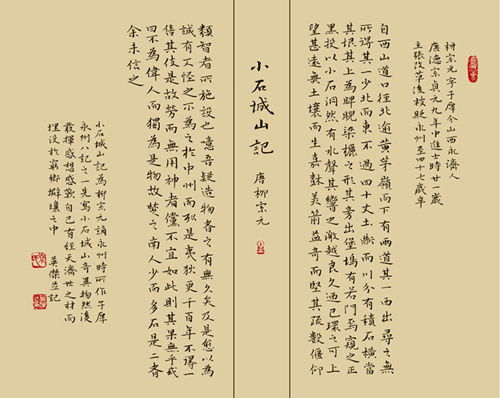 柳宗元字子厚今山西永濟人
唐德宗貞元九年中進士時廿一歲
主張改革後被貶永州至四十七歲卒
自西山道口徑北逾黃茅嶺而下有兩道其一西出尋之無
所得其一少北而東不過四十丈土斷而川分有積石橫當
其垠其上為睥睨梁欐之形其旁出堡塢有若門焉窺之正
黑投以小石洞然有水聲其響之激越良久乃已環之可上
望甚遠無土壤而生嘉樹美箭益奇而堅其疏數偃仰
小石城山記 唐柳宗元
類智者所施設也噫吾疑造物者之有無久矣及是愈以為
誠有又怪其不為之於中州而列是夷狄更千百年不得一
售其伎是故勞而無用神者儻不宜如此則其果無乎或
曰不為偉人而獨為是物故楚之南人少而多石是二者
余未信之
小石城山記為柳宗元謫永州時所作子厚
永州八記之一先寫小石城山奇異物然後
發揮感想感歎自己有經天濟世之材而
埋沒於窮鄉僻壤之中 傑並記